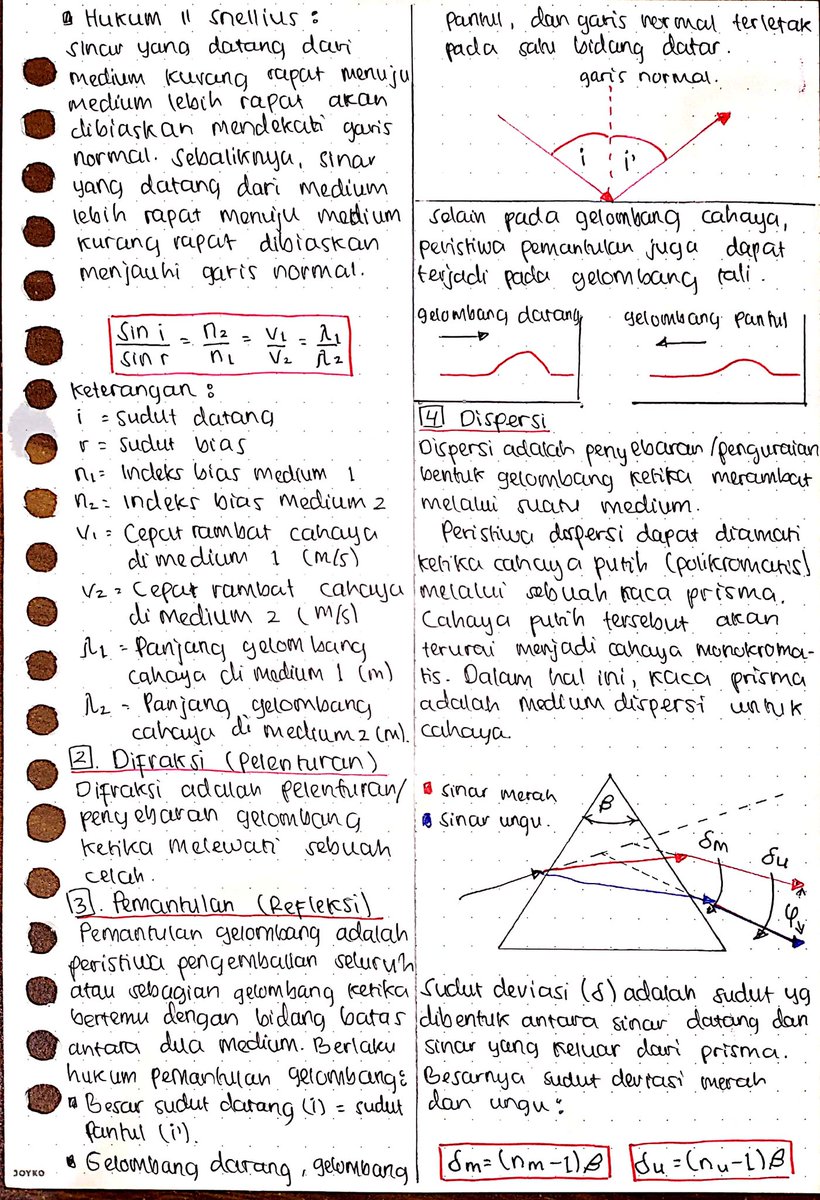 Hukum II Snellius :
Sinar yang datang dari
medium kurang rapat menuju
medium lebih rapat akan
dibiaskan mendekati garis
normal. Sebaliknya, sinar
yang datang dari medium
lebih rapat menuju medium
kurang rapat dibiaskan
menjauhi garis normal.
sin i / sin r = n2 / n1 = v1 / v2 = λ1 / λ2
Keterangan :
i = sudut datang
r = sudut bias
n1 = Indeks bias medium 1
n2 = Indeks bias medium 2
v1 = Cepat rambat cahaya
di medium 1 (m/s)
v2 = Cepat rambat cahaya
di medium 2 (m/s)
λ1 = Panjang gelombang
cahaya di medium 1 (m)
λ2 = Panjang gelombang
cahaya di medium 2 (m).
2. Difraksi (Pelenturan)
Difraksi adalah pelenturan/
penyebaran gelombang
ketika melewati sebuah
celah.
3. Pemantulan (Refleksi)
Pemantulan gelombang adalah
peristiwa pengembalian seluruh
atau sebagian gelombang ketika
bertemu dengan bidang batas
antara dua medium. Berlaku
hukum pemantulan gelombang:
Besar sudut datang (i) = sudut
pantul (i').
Gelombang datang, gelombang
JOYKO
pantul, dan garis normal terletak
pada satu bidang datar.
garis normal.
i i'
Selain pada gelombang cahaya,
peristiwa pemantulan juga dapat
terjadi pada gelombang tali.
gelombang datang
gelombang pantul
4 Dispersi
Dispersi adalah penyebaran/penguraian
bentuk gelombang ketika merambat
melalui suatu medium.
Peristiwa dispersi dapat diamati
ketika cahaya putih (polikromatis)
melalui sebuah kaca prisma.
Cahaya putih tersebut akan
terurai menjadi cahaya monokroma-
tis. Dalam hal ini, kaca prisma
adalah medium dispersi untuk
cahaya.
sinar merah
sinar ungu.
β
δm
δu
φ
Sudut deviasi (δ) adalah sudut yg
dibentuk antara sinar datang dan
sinar yang keluar dari prisma.
Besarnya sudut deviasi merah
dan ungu :
δm = (nm-1)β
δu = (nu-1)β